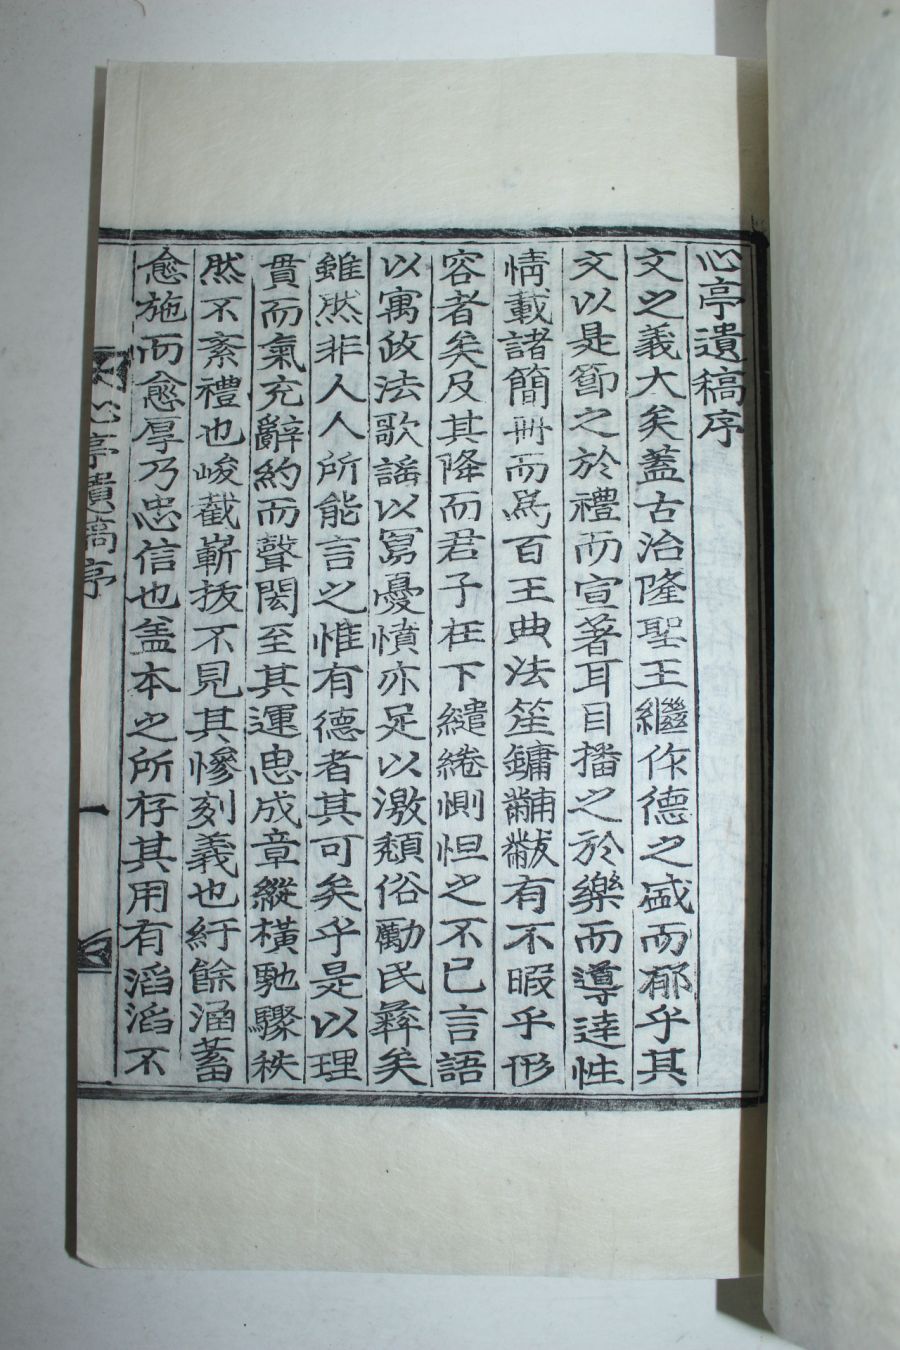 心亭遺稿序
文之義大矣蓋古治隆聖王繼作德之盛而郁乎其
文以是節之於禮而宣著耳目播之於樂而導達性
情載諸簡冊而爲百王典法笙鏞黼黻有不暇乎形
容者矣及其降而君子在下繾綣惻怛之不已言語
以寓攸法歌謠以寫憂憤亦足以激頹俗勵民彝矣
雖然非人人所能言之惟有德者其可矣乎是以理
貫而氣充辭約而聲閎至其運思成章縱橫馳驟秩
然不紊禮也峻截嶄拔不見其慘刻義也紆餘涵蓄
愈施而愈厚乃忠信也盖本之所存其用有滔滔不
心亭遺稿序
一